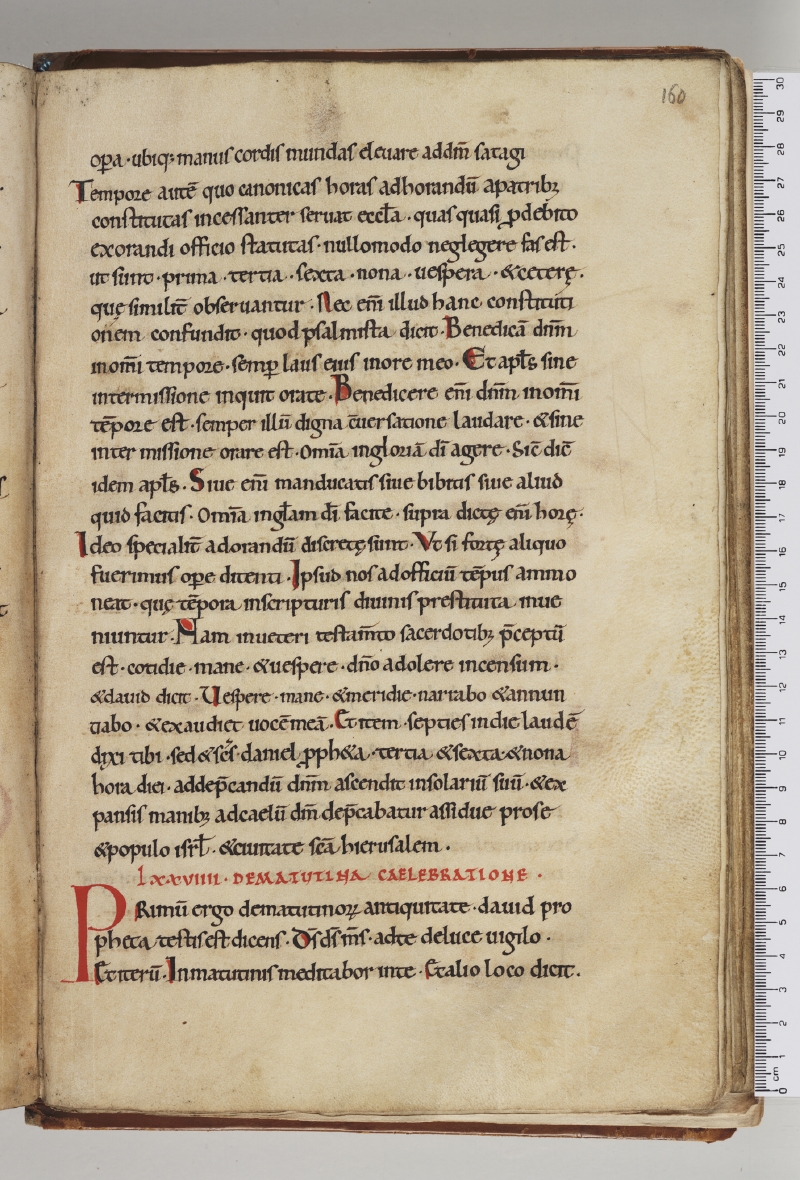 160
oꝑa · ubiq; manus cordis mundas eleuare addm̄ satagi
Tempore autē quo canonicas horas adhorandū apatribꝫ
constitutas incessanter seruat eccl̄a · quas quasi ꝓdebito
exorandi officio statutas · nullomodo neglegere fas est ·
ut sunt · prima · tertia · sexta · nona · uespera · &ceterę ·
quę similit̄ obseruantur · Nec eni̅ illud hanc constituti
onem confundit · quod psalmista dicit · Benedicā dnm̄
inom̄i tempore · semꝑ laus eius inore meo · Et apl̄s sine
intermissione inquit orate · Benedicere eni̅ dnm̄ inom̄i
tēpore est · semper illū digna c̄uersatione laudare · &sine
inter missione orare est · Omīa ingloriā dī agere · Sic̄ dic̄
idem apl̄s · Siue eni̅ manducatis siue bibitis siue aliud
quid facitis · Omīa ingl̄am dī facite · supra dictę eni̅ horę ·
Ideo specialit̄ adorandū discretę sunt · Vt si fortę aliquo
fuerimus oꝑe ditenti · Ipsud nos adofficiū tēpus ammo
neat · quę tēpora inscripturis diuinis prestituta inue
niuntur · Nam inueteri testam̄to sacerdotibꝫ p̄ceptū
est · cotidie · mane · &uespere · dn̄o adolere incensum ·
&dauid dicit · Uespere · mane · &meridie · narrabo &annun
tiabo · &exaudiet uocē meā · Et item · septies indie laudē
dixi tibi · sed &sc̄s · daniel ꝓph&a · tertia &sexta &nona
hora diei · addep̄candū dnm̄ ascendit insolariū suū · &ex
pansis manibꝫ adcaelū dm̄ dep̄cabatur assidue prose
&populo isrl̄ · &ciuitate sc̄a hierusalem ·
lxxviiii · DEMATUTINA CAELEBRATIONE ·
PRimū ergo dematutinoꝝ antiquitate · dauid pro
pheta testis est dicens · Ds̄ ds̄ ms̄ · adte deluce uigilo ·
Et iterū · Inmatutinis meditabor inte · Et alio loco dicit ·